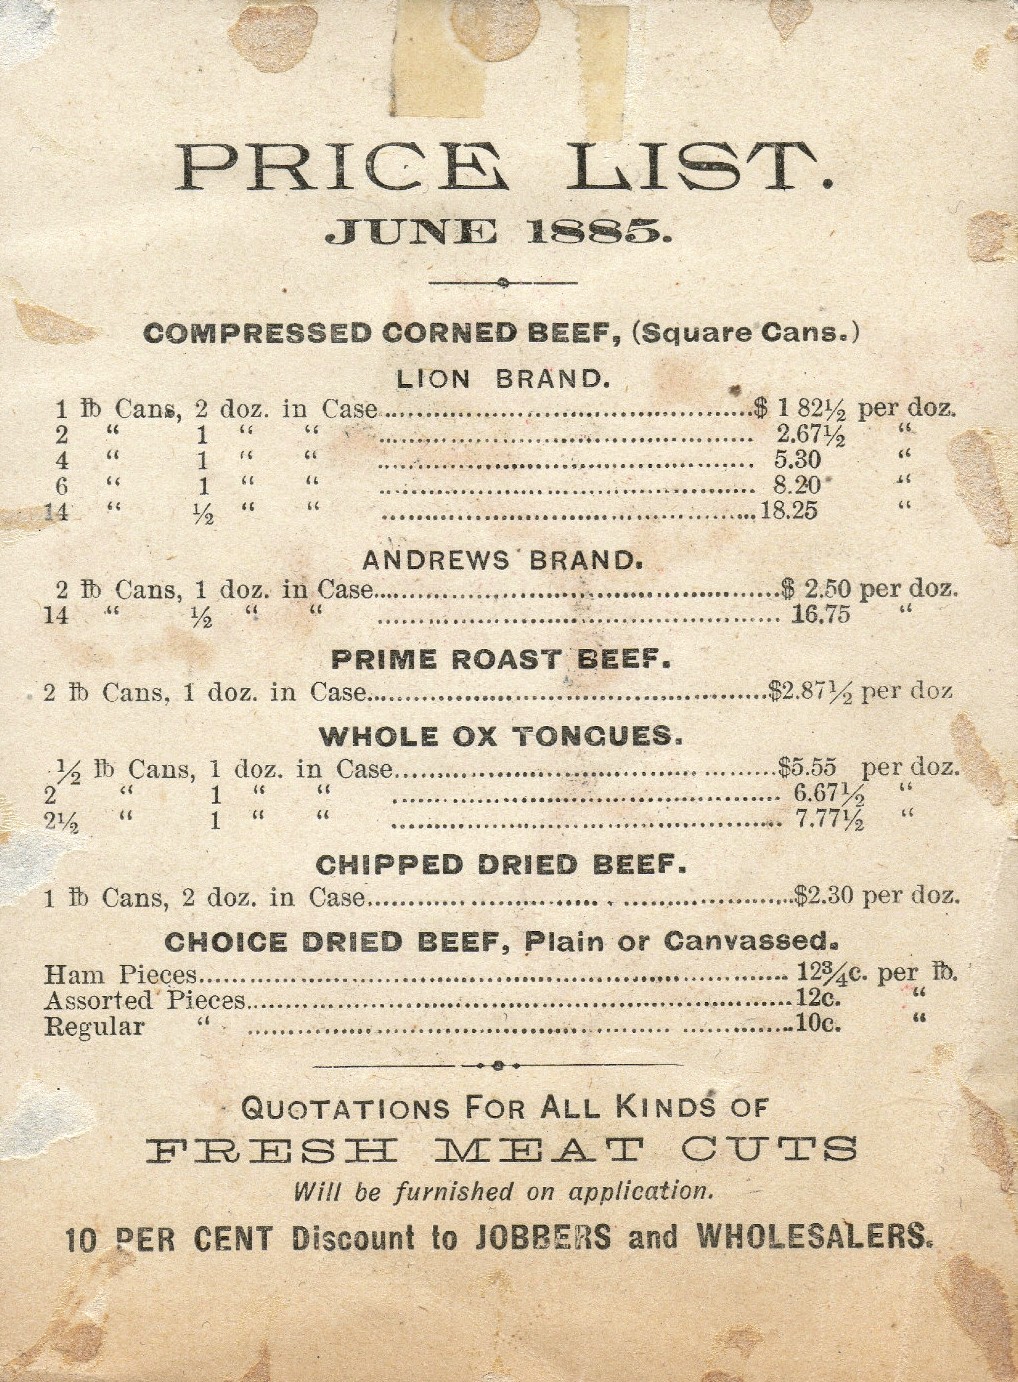 PRICE LIST.
JUNE 1885.
COMPRESSED CORNED BEEF, (Square Cans.)
LION BRAND.
1 ℔ Cans, 2 doz. in Case........................................$ 1 82½ per doz.
2 “ 1 “ “ ........................................ 2.67½ “
4 “ 1 “ “ ........................................ 5.30 “
6 “ 1 “ “ ........................................ 8.20 “
14 “ ½ “ “ ........................................18.25 “
ANDREWS BRAND.
2 ℔ Cans, 1 doz. in Case........................................$ 2.50 per doz.
14 “ ½ “ “ ........................................ 16.75 “
PRIME ROAST BEEF.
2 ℔ Cans, 1 doz. in Case........................................$2.87½ per doz
WHOLE OX TONGUES.
½ ℔ Cans, 1 doz. in Case........................................$5.55 per doz.
2 “ 1 “ “ ........................................ 6.67½ “
2½ “ 1 “ “ ........................................ 7.77½ “
CHIPPED DRIED BEEF.
1 ℔ Cans, 2 doz. in Case........................................$2.30 per doz.
CHOICE DRIED BEEF, Plain or Canvassed.
Ham Pieces........................................ 12¾c. per ℔.
Assorted Pieces........................................12c. “
Regular “ ........................................10c. “
QUOTATIONS FOR ALL KINDS OF
FRESH MEAT CUTS
Will be furnished on application.
10 PER CENT Discount to JOBBERS and WHOLESALERS.